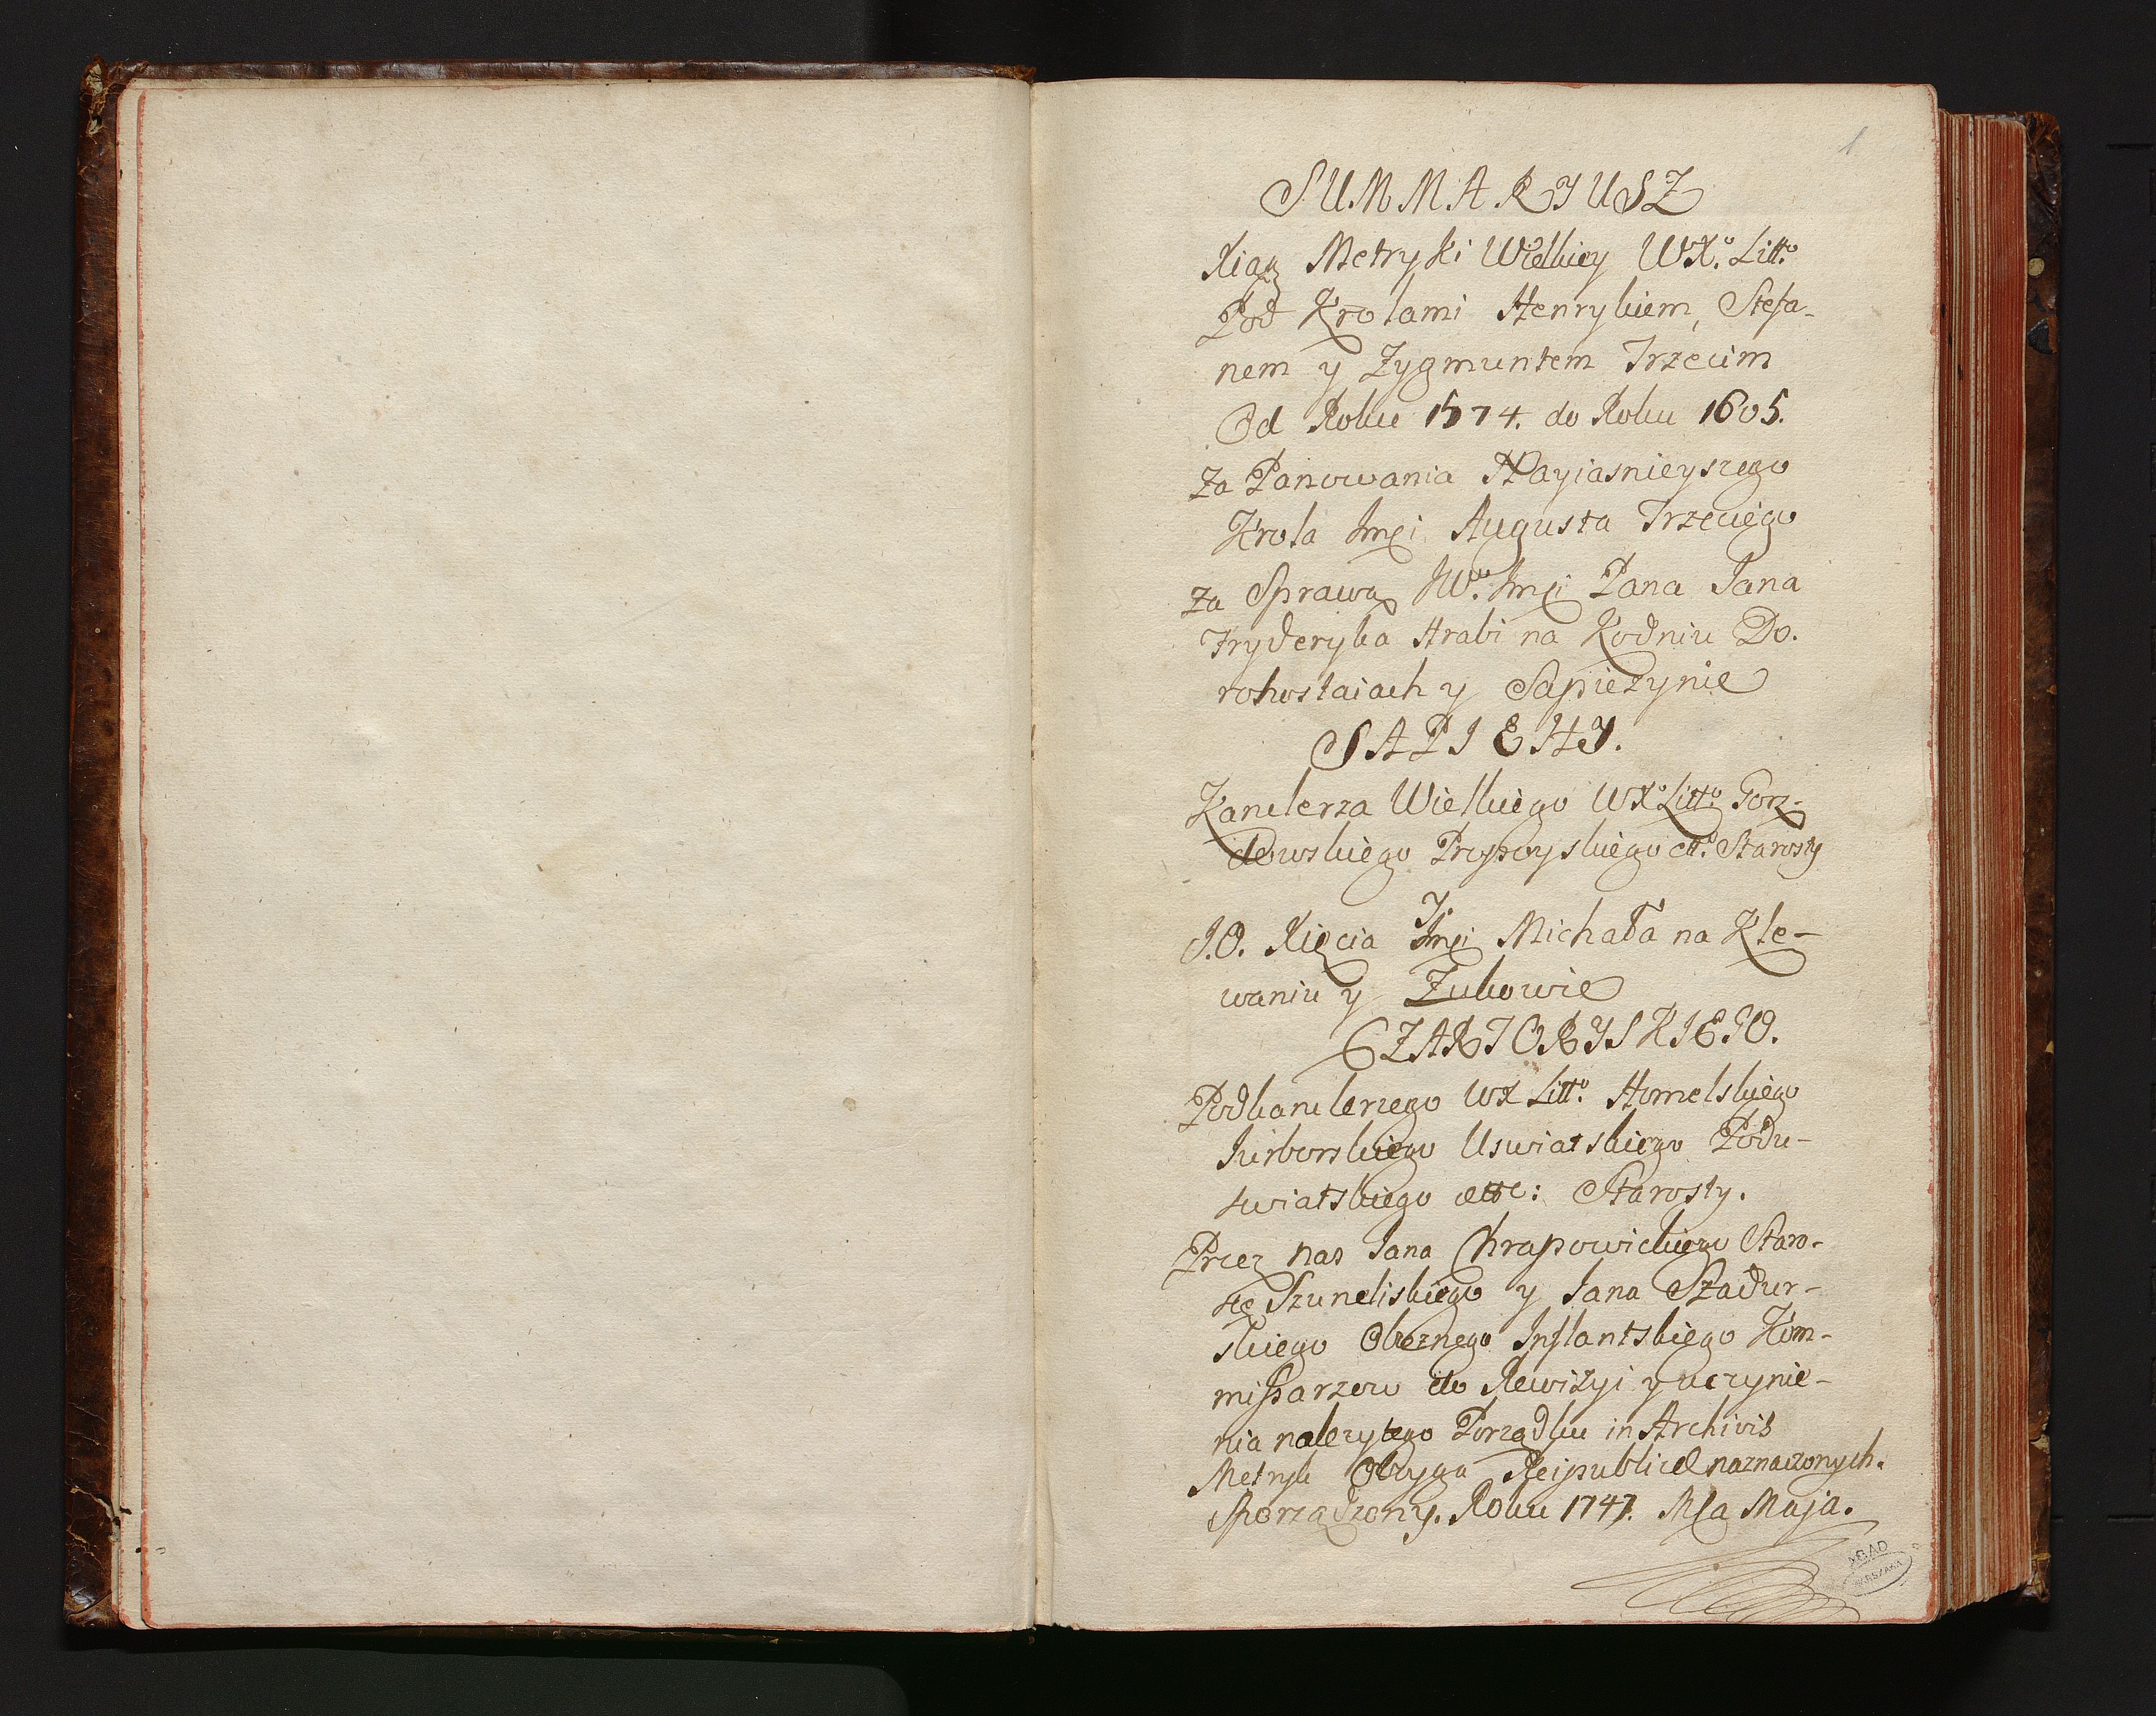 1
SUMMARJUSZ
Xiąg Metryki Wielkiey WX.º Litt.º
Pod Krolami Henrykiem, Stefa-
nem y Zygmuntem Trzecim
Od Roku 1574. do Roku 1605.
Za Panowania Nayiasnieyszego
Krola Jmći Augusta Trzeciego
za Sprawą JW.º Jmći Pana Jana
Fryderyka Hrabi na Kodniu Do-
rohostaiach y Sapieżynie
SAPIEHY.
Kanclerza Wielkiego WXº Littº Gorz-
dowskiego Propoyskiego ett.ª Starosty
J.
J.O. Xięcia Jmći Michała na Kle-
waniu y Żukowie
CZARTORYSKIEGO.
Podkanclerzego WX Litt.º Homelskiego
Jurborskiego Uswiatskiego Podu-
swiatskiego ettc: Starosty.
Przez nas Jana Chrapowickiego Staro-
stę Szuneliskiego y Jana Szadur-
skiego Oboznego Inflantskiego Kom-
missarzow do Rewizyi y uczynie-
nia należytego Porządku in Archivis
Metryk Oboyga Reipublicæ naznaczonych.
Sporządzony. Roku 1747. Msca Maja.
AGAD
WARSZAWA